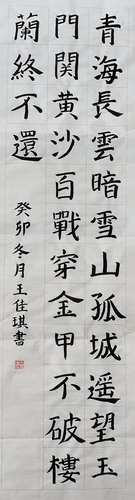 青海長雲暗雪山孤城遥望玉
門関黄沙百戰穿金甲不破樓
蘭終不還
癸卯冬月王佳琪書